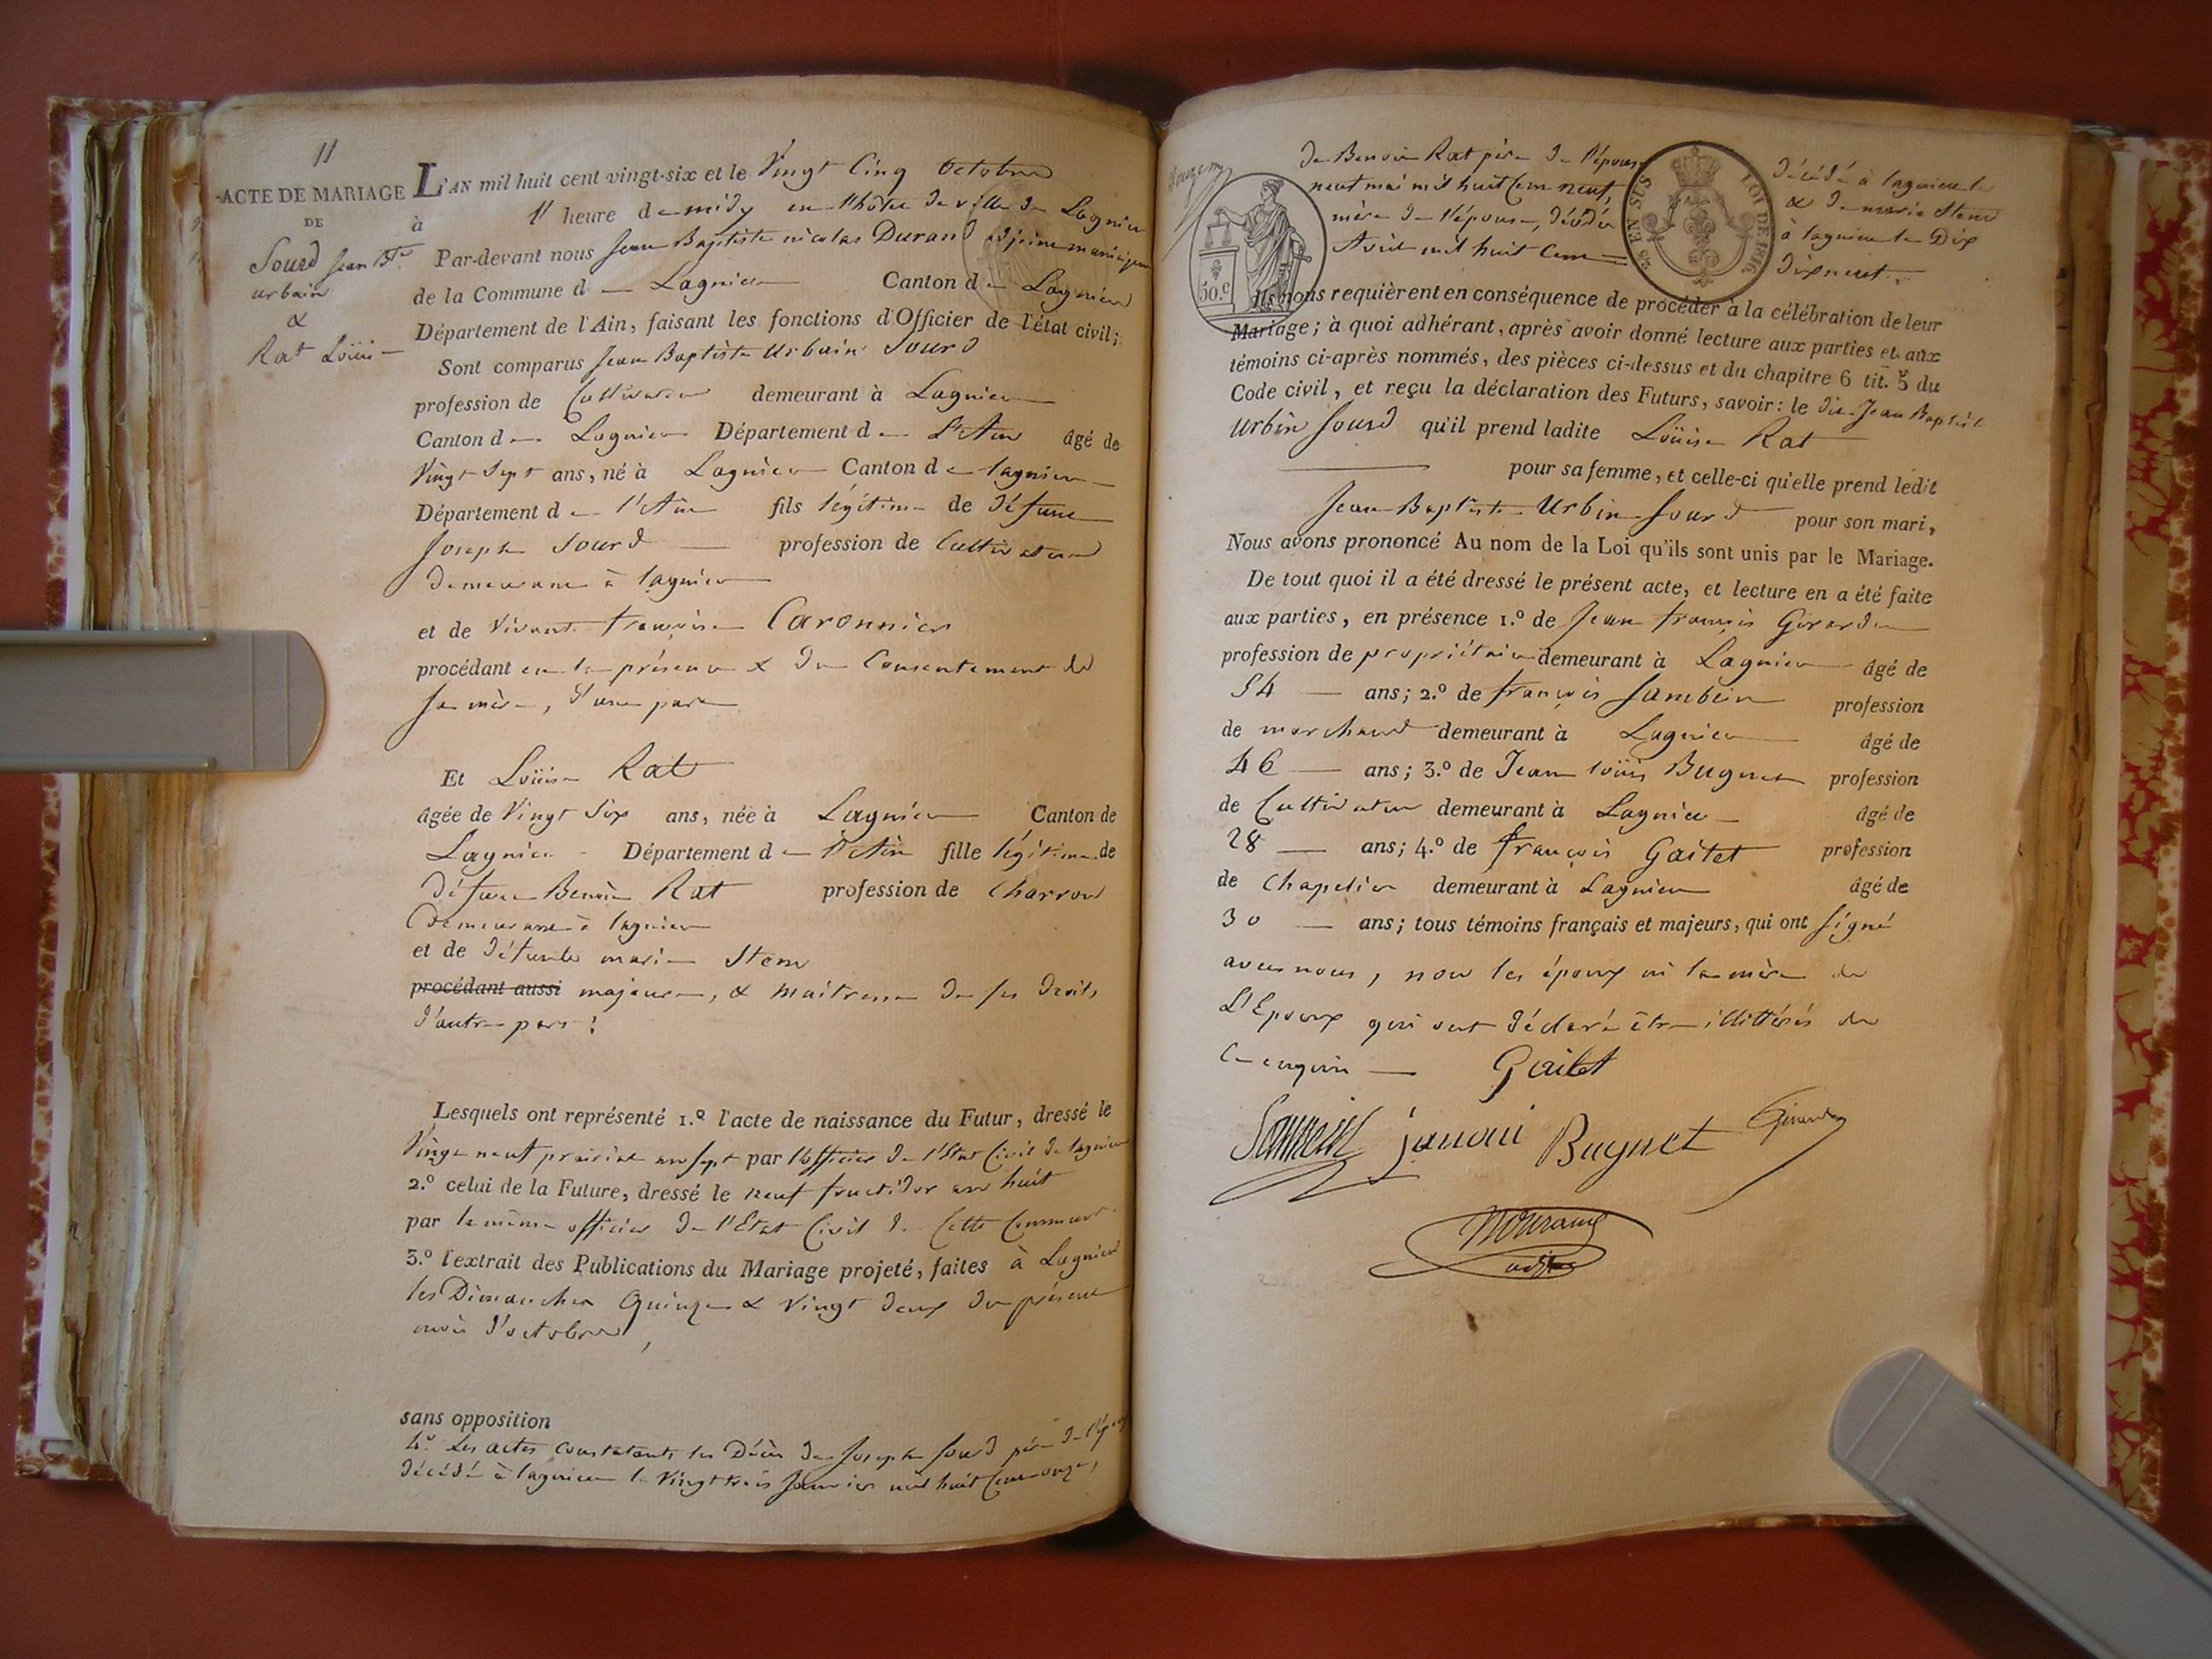 11
ACTE DE MARIAGE
DE
Sourd Jean Bte
urbain
&
Rat Loüise
L'AN mil huit cent vingt-six et le Vingt Cinq Octobre
à 11 heure de midy en l'hôtel de ville de Lagnieu
Par-devant nous Jean Baptiste nicolas Durand adjoint municipal
de la Commune de Lagnieu Canton de Lagnieu
Département de l'Ain, faisant les fonctions d'Officier de l'état civil;
Sont comparus Jean Baptiste Urbain Sourd
profession de Cultivateur demeurant à Lagnieu
Canton de Lagnieu Département de L'Ain âgé de
Vingt Sept ans, né à Lagnieu Canton de lagnieu
Département de l'Ain fils légitime de défunt
Joseph Sourd profession de Cultivateur
demeurant à lagnieu
et de Vivante françoise Caronnier
procédant en la présence & du Consentement de
sa mère, d'une part
Et Loüise Rat
âgée de Vingt Six ans, née à Lagnieu Canton de
Lagnieu Département de l'Ain fille légitime de
défunt Benoit Rat profession de Charron
demeurant à lagnieu
et de défunte marie Stem
procédant aussi majeure, & maitresse de ses droits
d'autre part;
Lesquels ont représenté 1.º l'acte de naissance du Futur, dressé le
Vingt neuf prairial an sept par l'officier de l'Etat Civil de lagnieu
2.º celui de la Future, dressé le neuf fructidor an huit
par le même officier de l'Etat Civil de Cette Commune
3.º l'extrait des Publications du Mariage projeté, faites à Lagnieu
les Dimanches Quinze & Vingt deux du présent
mois d'octobre,
sans opposition
4º. Les actes Constatants les Décès de Joseph Sourd père de l'époux
décédé à lagnieu le Vingt trois Janvier mil huit Cent onze,
de Benoit Rat père de l'épouse décédé à lagnieu le
neuf mai mil huit Cent neuf, & de marie Stem
mère de l'épouse, décédée à lagnieu le Dix
Avril mil huit Cent dix neuf.
50.c
25 EN SUS
LOI DE 1816.
Ils nous requièrent en conséquence de procéder à la célébration de leur
Mariage; à quoi adhérant, après avoir donné lecture aux parties et aux
témoins ci-après nommés, des pièces ci-dessus et du chapitre 6 tit. 5 du
Code civil, et reçu la déclaration des Futurs, savoir: le dit Jean Baptiste
Urbin Sourd qu'il prend ladite Loüise Rat
pour sa femme, et celle-ci qu'elle prend ledit
Jean Baptiste Urbin Sourd pour son mari,
Nous avons prononcé Au nom de la Loi qu'ils sont unis par le Mariage.
De tout quoi il a été dressé le présent acte, et lecture en a été faite
aux parties, en présence 1.º de Jean françois Girardin
profession de propriétaire demeurant à Lagnieu âgé de
54 ans; 2.º de françois Sambein profession
de marchand demeurant à Lagnieu âgé de
46 ans; 3.º de Jean loüis Bugnet profession
de Cultivateur demeurant à Lagnieu âgé de
28 ans; 4.º de françois Gaitet profession
de Chapelier demeurant à Lagnieu âgé de
30 ans; tous témoins français et majeurs, qui ont signé
avec nous, non les époux ni la mère de
L'Epoux qui ont déclaré être illittérés de
ce enquis
Gaitet
Bugnet
NDurand
adjt